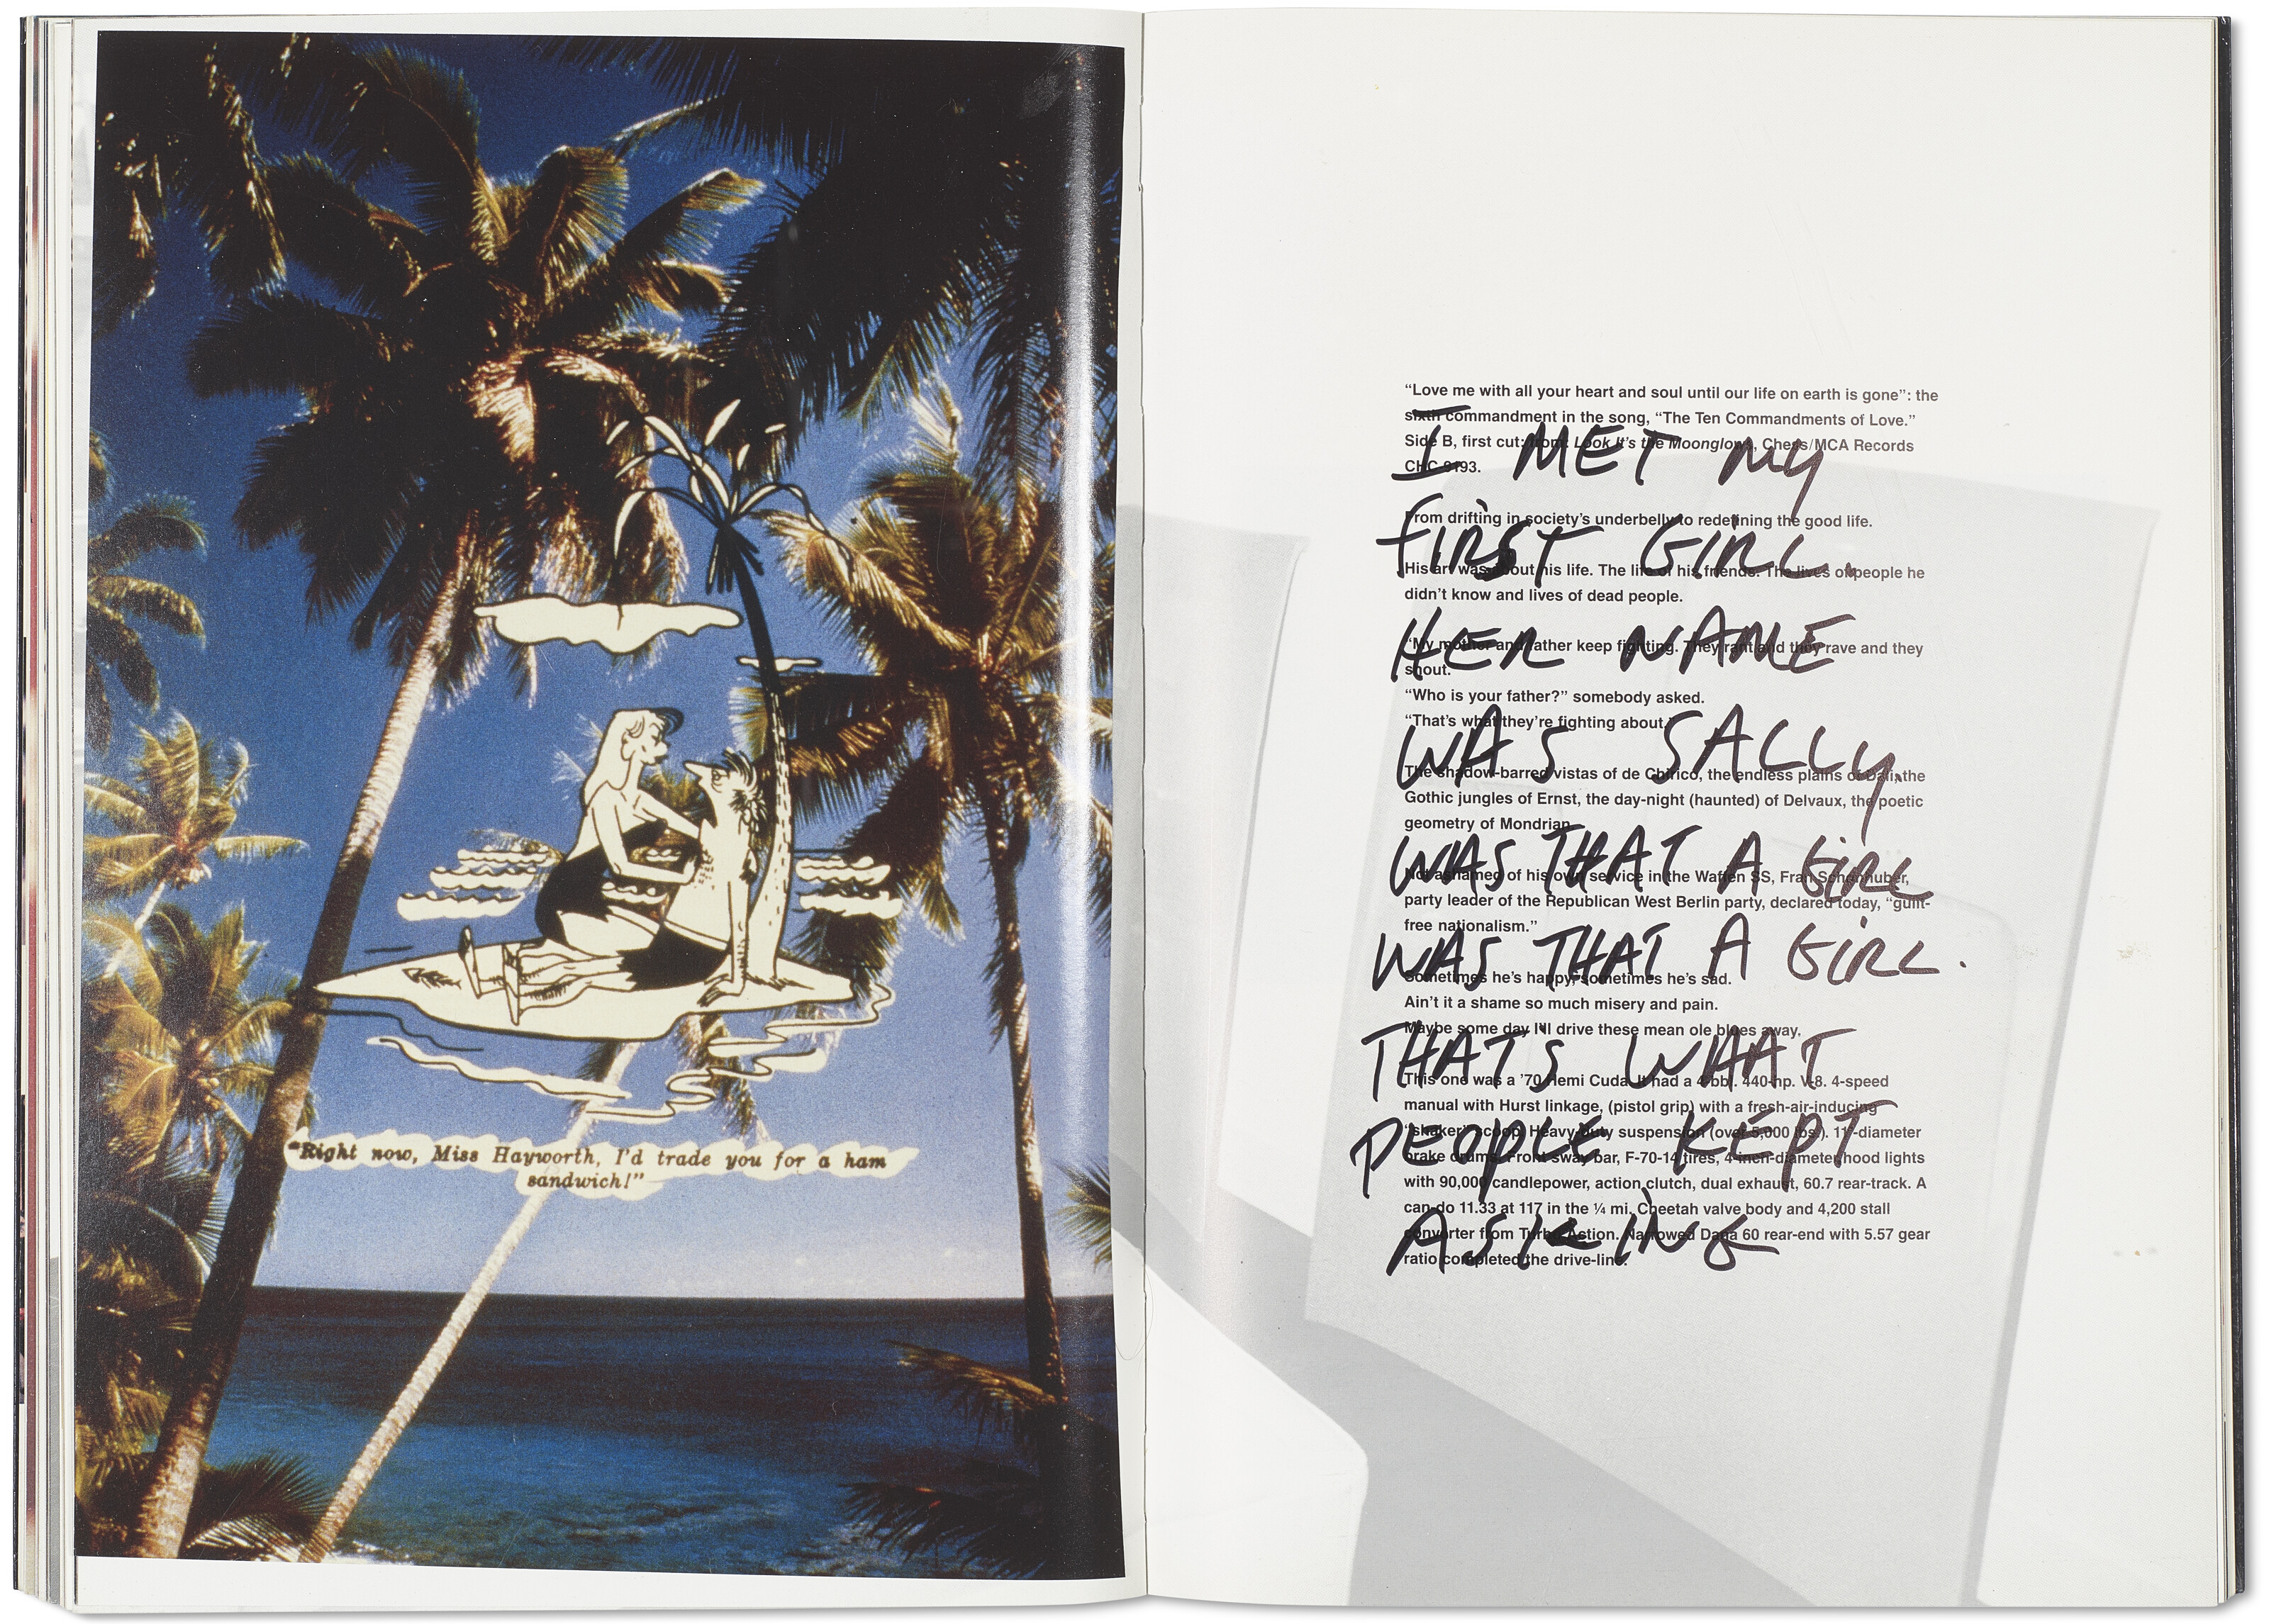 “Right now, Miss Hayworth, I’d trade you for a ham
sandwich!”
“Love me with all your heart and soul until our life on earth is gone”: the
sixth commandment in the song, “The Ten Commandments of Love.”
Side B, first cut: from: Look It’s the Moonglows, Chess/MCA Records
CHC 9193.
From drifting in society’s underbelly to redefining the good life.
His art was about his life. The life of his friends. The lives of people he
didn’t know and lives of dead people.
“My mother and father keep fighting. They rant and they rave and they
shout.”
“Who is your father?” somebody asked.
“That’s what they’re fighting about.”
The shadow-barred vistas of de Chirico, the endless plains of Dali, the
Gothic jungles of Ernst, the day-night (haunted) of Delvaux, the poetic
geometry of Mondrian.
Not ashamed of his own service in the Waffen SS, Franz Schönhuber,
party leader of the Republican West Berlin party, declared today, “guilt-
free nationalism.”
Sometimes he’s happy, sometimes he’s sad.
Ain’t it a shame so much misery and pain.
Maybe some day I’ll drive these mean ole blues away.
This one was a ’70 Hemi Cuda. It had a 4 bbl. 440-hp. V-8. 4-speed
manual with Hurst linkage, (pistol grip) with a fresh-air-inducing
“shaker” scoop. Heavy-duty suspension (over 5,000 lbs.). 11"-diameter
brake drums. Front sway bar, F-70-14 tires, 4-inch-diameter hood lights
with 90,000 candlepower, action clutch, dual exhaust, 60.7 rear-track. A
can-do 11.33 at 117 in the ¼ mi. Cheetah valve body and 4,200 stall
converter from Turbo Action. Narrowed Dana 60 rear-end with 5.57 gear
ratio completed the drive-line.
I MET MY
FIRST GIRL.
HER NAME
WAS SALLY.
WAS THAT A GIRL
WAS THAT A GIRL.
THAT'S WHAT
PEOPLE KEPT
ASKING